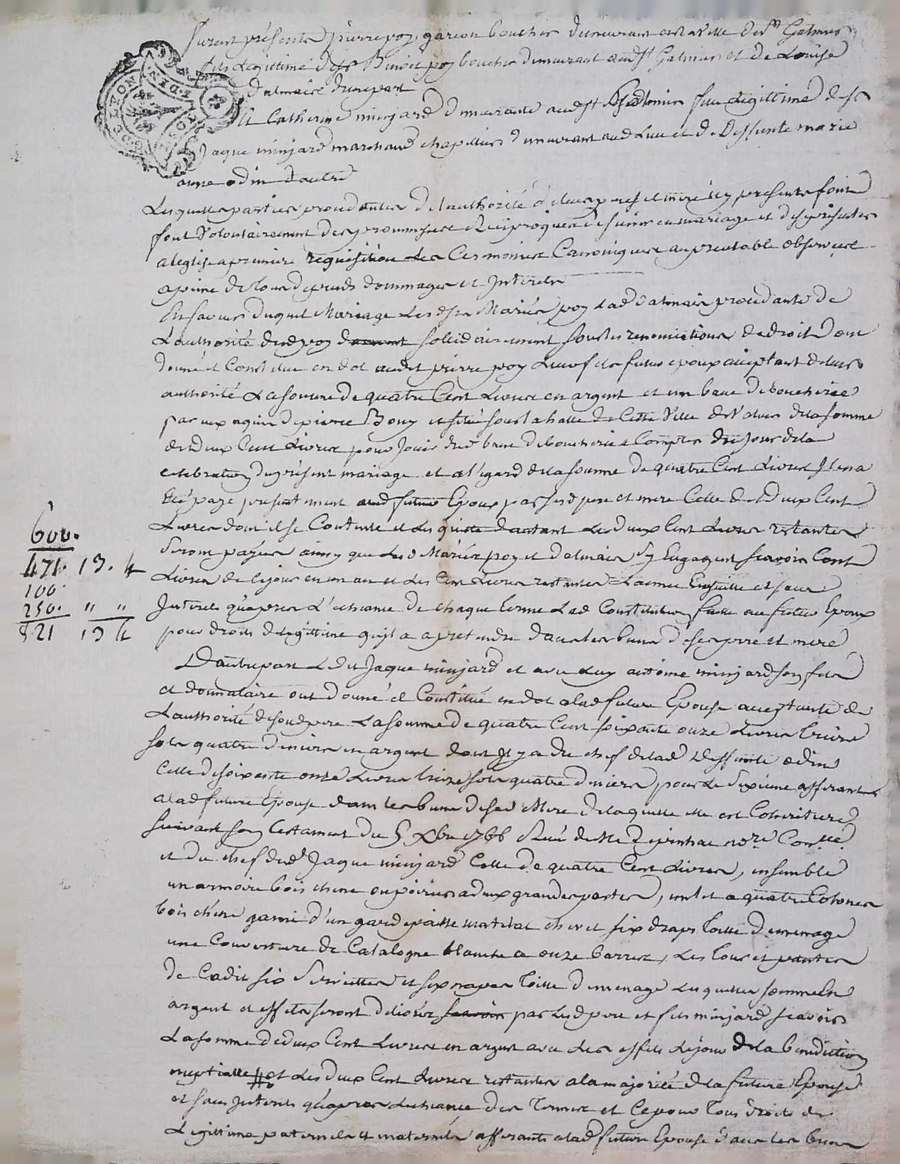 furent présents pierre poy garcon boucher demeurant en la ville de st Galmier
fils legittime de sr Benoit poy boucher demeurant audt st Galmier et de Louise
dalmais d'une part
Et Catherine minjard demeurante audt st Galmier fille legittime de sr
Jaque minjard marchand chapellier demeurant aud lieu et de deffunte marie
anne odin d'autre
Lesquelles parties procedantes de l'authorité de leurs peres et mere icy presents
font volontairement des promesses reciproques de s'unir en mariage et de se presenter
a l'eglise a premiere requisition les Ceremonies Canoniques au prealable observées
a peine de tous depends dommages et Interets
En faveur duquel Mariage lesd Mariés poy et lad dalmais procedante de
L'authorité dud poy solidairement sous les renonciations de droit ont
donné et Constitué en dot audit pierre poy leur fils futur epoux acceptant de leur
authorité La somme de quatre Cent Livres en argent et un banc de boucherie
par eux aquis de pierre Bony et situé sous la halle de Cette Ville de Valeur de la somme
de deux Cent Livres pour jouir du banc de boucherie a Compter du jour de la
celebration du present mariage et a l'egard de la somme de quatre Cent Livres Il en a
Eté payé presentement aud futur Epoux par sesd pere et mere Celle de deux Cent
Livres dont il se Contente et les quitte d'autant Les deux Cent Livres restantes
Seront payées ainsy que lesd Mariés poy et dalmais s'y Engagent scavoir Cent
Livres de ce jour en un an et les Cent Livres restantes L'année Ensuitte et sans
Interets qu'apres L'echeance de chaque terme Lad Constitution faitte au futur Epoux
pour droits de legittime qu'il a a pretendre dans les biens de ses pere et mere
600.
471. 13. 4
100.
250. " "
821 13 4
D'autre part Ledit Jaque minjard et avec luy antoine minjard son fils
et donnataire ont donné et Constitué en dot a lad future Epouse acceptante de
L'authorité de son d pere La somme de quatre Cent soixante onze Livres treize
sols quatre deniers en argent dont Il y a du chef de lad deffunte odin
Celle de soixante onze Livres treize sols quatre deniers pour le sixieme afferant
a lad future Epouse dans les biens de sad Mere de laquelle elle est Coheritiere
suivant son testament du 5 Xbre 1766 Reçu
et du chef dud Jaque minjard Celle de quatre Cent Livres, ensemble
un armoire bois chene ou poirier a deux grandes portes, un lit a quatre Colonnes
bois chene garni d'un garde paille matelat chevet six draps toille de menage
une Couverture de Catalogne blanche a onze barres, Les tour et pantes
de Cadis six Serviettes et six napes toille de menage Lesquelles sommes en
argent et effets seront delivrés par lesd pere et fils minjard scavoir
La somme de deux Cent Livres en argent avec les effets le jour de la benediction
nuptialle et les deux Cent Livres restantes a la majorité de la future Epouse
et sans Interets qu'apres L'echeance des Termes et Ce pour Tous droits de
Legittime paternels et maternels afferants a lad future Epouse dans les biens